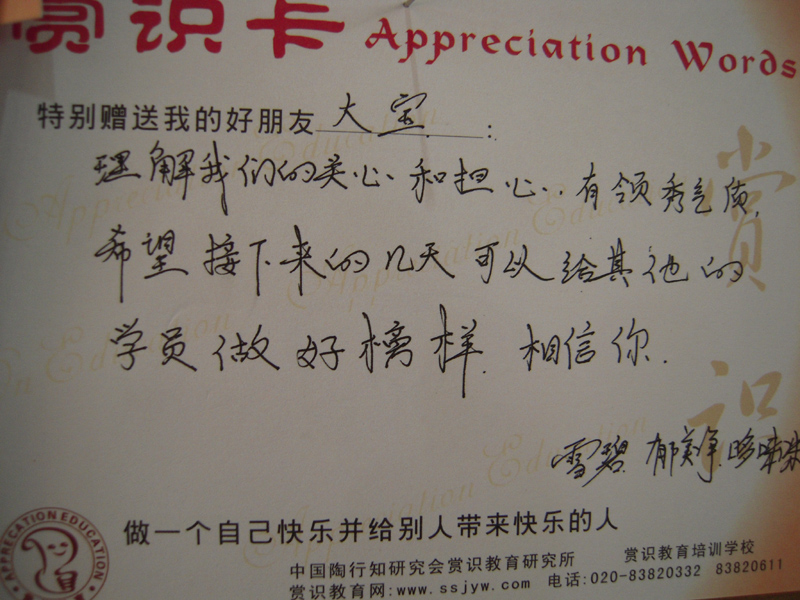 赏识卡 Appreciation Words
特别赠送我的好朋友 大宝:
理解我们的关心和担心.有领秀气质,
希望接下来的几天可以给其他的
学员做好榜样.相信你.
雪碧 郁美净
赏识
APPRECIATION EDUCATION
做一个自己快乐并给别人带来快乐的人
中国陶行知研究会赏识教育研究所 赏识教育培训学校
赏识教育网:www.ssjyw.com 电话:020-83820332 83820611